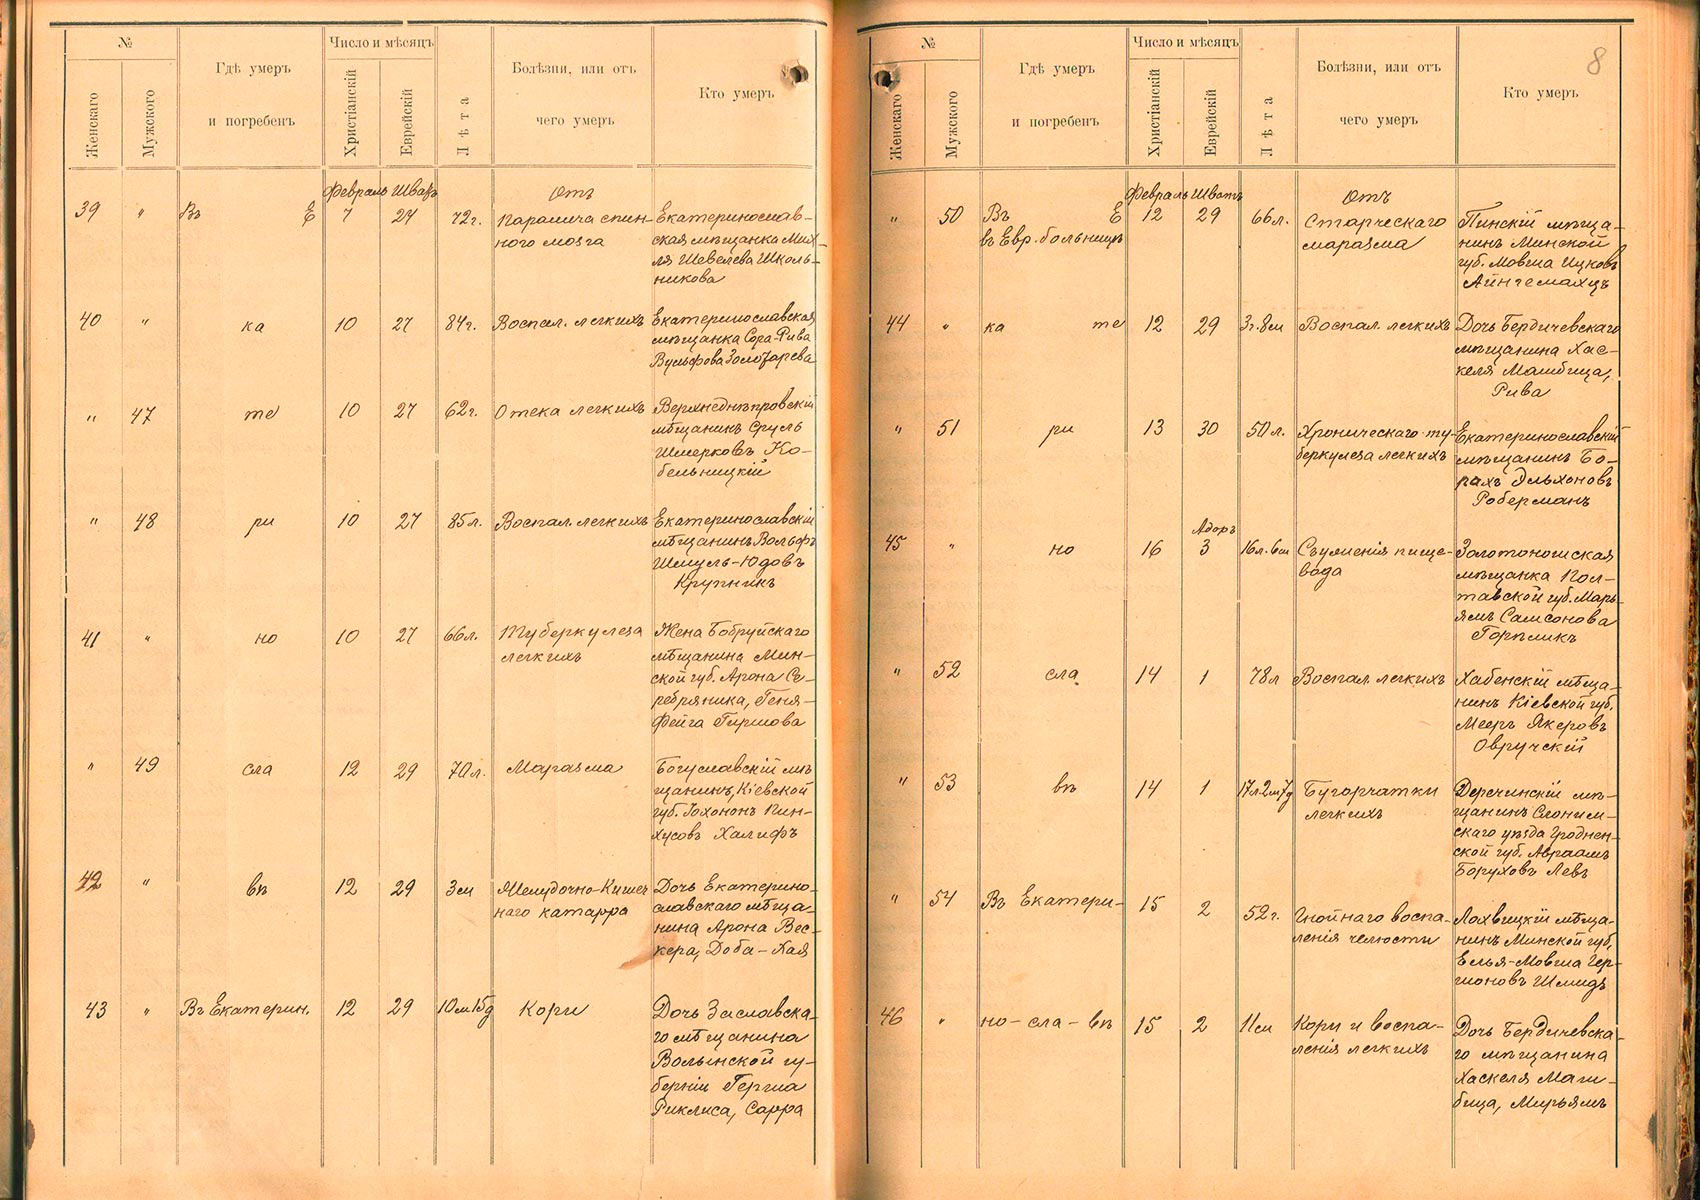 №
Женскаго
Мужскаго
Гдѣ умеръ
и погребенъ
Число и мѣсяцъ
Христіанскій
Еврейскій
Лѣта
Болѣзни, или отъ
чего умеръ
Кто умеръ
Февраль Шватъ
Отъ
39 " Въ Е 7 24 72г. Паралича спин-
ного мозга
Екатеринослав-
ская мѣщанка Мих-
ля Шевелева Школь-
никова
40 " ка 10 27 84г. Воспал. легкихъ
Екатеринославская
мѣщанка Сора-Рива
Вульфова Золотарева
" 47 те 10 27 62г. Отека легкихъ
Верхнеднѣпровскій
мѣщанинъ Сруль
Шмерковъ Ко-
бельницкій
" 48 ри 10 27 85л. Воспал. легкихъ
Екатеринославскій
мѣщанинъ Вольфъ
Шмуль-Юдовъ
Крупникъ
41 " но 10 27 66л. Туберкулеза
легкихъ
Жена Бобруйскаго
мѣщанина Мин-
ской губ. Арона Се-
ребряника, Геня-
Фейга Гиршова
" 49 сла 12 29 70л. Маразма
Богуславскій мѣ
щанинъ, Кіевской
губ. Іохононъ Пин-
хусовъ Халифъ
42 " вѣ 12 29 3м Желудочно-Кишеч
наго катарра
Дочь Екатерино-
славскаго мѣща-
нина Арона Вес-
кера, Доба-Хая
43 " Въ Екатерин. 12 29 10м15д Кори
Дочь Заславска-
го мѣщанина
Волынской гу-
берніи Герша
Риклиса, Сарра
8
№
Женскаго
Мужскаго
Гдѣ умеръ
и погребенъ
Число и мѣсяцъ
Христіанскій
Еврейскій
Лѣта
Болѣзни, или отъ
чего умеръ
Кто умеръ
Февраль Шватъ
Отъ
" 50 Въ Е 12 29 66л. Старческаго
въ Евр. больницѣ
маразма
Пинскій мѣща-
нинъ Минской
губ. Мовша Ицковъ
Айнгемахцъ
44 " ка те 12 29 3г.8м Воспал. легкихъ
Дочь Бердичевскаго
мѣщанина Хас-
келя Машбица,
Рива
" 51 ри 13 30 50л. Хроническаго ту-
беркулеза легкихъ
Екатеринославскій
мѣщанинъ Бо-
рахъ Эльхоновъ
Роберманъ
Адоръ
45 " но 16 3 16л.6м Съуженія пище-
вода
Золотоношская
мѣщанка Пол-
тавской губ. Марь-
ямъ Самсонова
" 52 сла 14 1 78л Воспал. легкихъ
Хабенскій мѣща-
нинъ Кіевской губ.
Мееръ Якеровъ
Овручскій
" 53 вѣ 14 1 17л2м7д Бугорчатки
легкихъ
Деречинскій мѣ-
щанинъ Слоним-
скаго уѣзда Гроднен-
ской губ. Авраамъ
Боруховъ Левъ
" 54 Въ Екатери- 15 2 52г. Гнойнаго воспа-
ленія челюсти
Лохвицкій мѣща-
нинъ Минской губ,
Елья-Мовша Гер-
шоновъ Шмидъ
46 " но-сла-вѣ 15 2 11м Кори и воспа-
ленія легкихъ
Дочь Бердичевска-
го мѣщанина
Хаскеля Маш-
бица, Мирьямъ